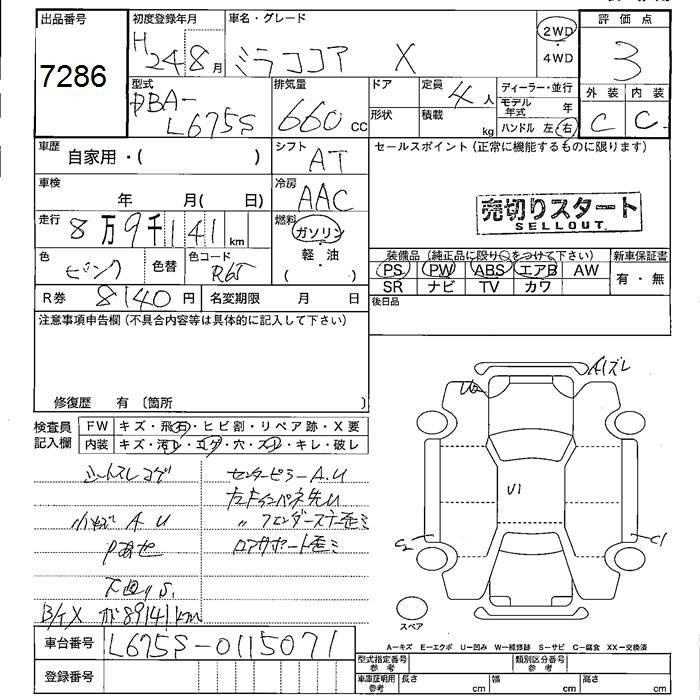 出品番号
7286
初度登録年月
H 24 8 月
車名・グレード
ミラココア X
2WD
4WD
評価点
3
外装 内装
C C
型式
DBA-
L675S
排気量
660 cc
ドア
形状
定員 4 人
積載 kg
ディーラー・並行
モデル年式 年
ハンドル 左 右
車歴
自家用・( )
シフト
AT
セールスポイント(正常に機能するものに限ります)
車検
年 月( 日)
冷房
AAC
売切りスタート
SELLOUT
走行
8万9千141 km
燃料
ガソリン
軽・油
( )
色
ピンク
色替
色コード
R65
装備品(純正品に限り○をつけて下さい)
新車保証書
PS PW ABS エアB AW
SR ナビ TV カワ
有・無
R券 8140 円
名変期限 月 日
後日品
注意事項申告欄(不具合内容等は具体的に記入して下さい)
修復歴 有 〔箇所 〕
検査員
記入欄
FW キズ・飛石・ヒビ割・リペア跡・X要
内装 キズ・汚レ・コゲ・穴・スレ・キレ・破レ
シートスレコゲ
小キズ A U
Pあせ
下回りS.
メ89141km
センターピラーA.U
〃 フェンダーステー歪ミ
コアサポート歪ミ
A1ズレ
U2
U1
C2
C1
スペア
A-キズ E-エクボ U-凹み W-補修跡 S-サビ C-腐食 XX-交換済
車台番号 L675S-0115071
登録番号
型式指定番号
参考
類別区分番号
参考
車庫証明用
参考
長さ cm
幅 cm
高さ cm